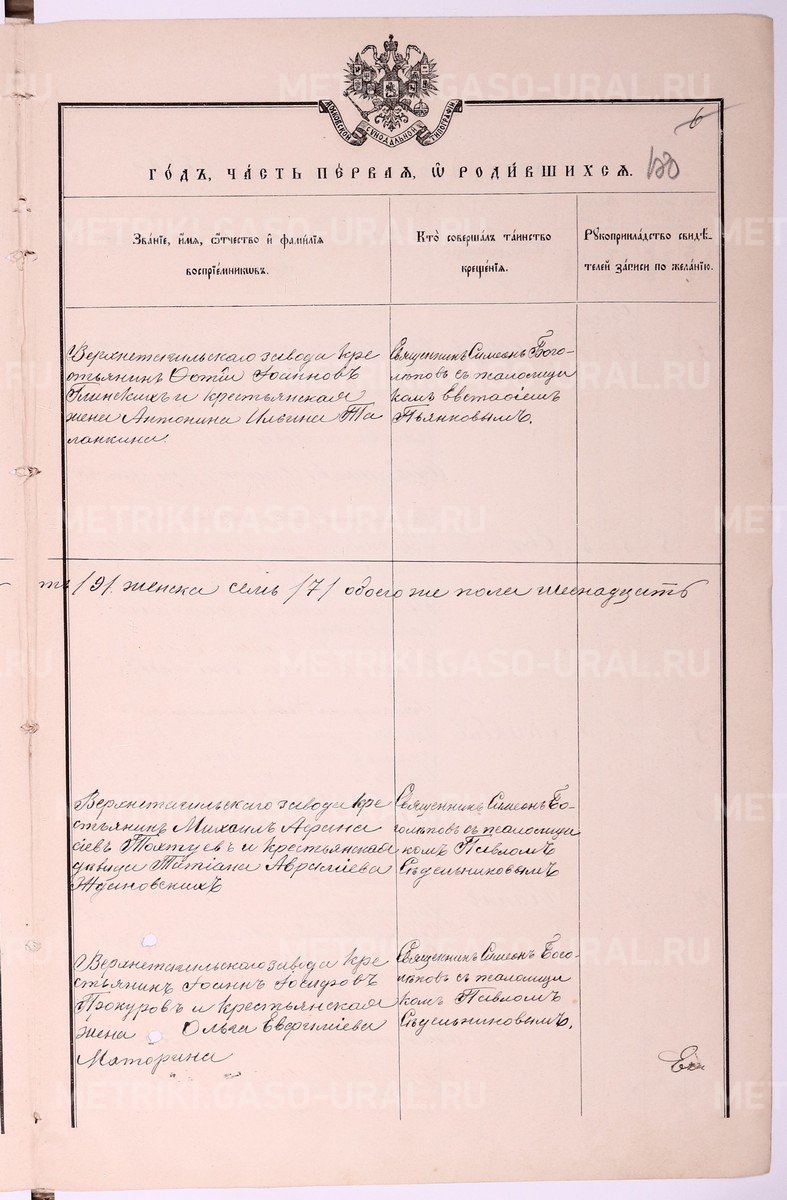 МОСКОВСКОЙ СѴНОДАЛЬНОЙ ТИПОГРАФІИ
6
ГО́ДЪ, ЧА́СТЬ ПЕ́РВАЯ, Ѡ҆ РОДИ́ВШИХСЯ.
120
Зва́нїе, и҆́мя, ѻ҆́тчество и҆ фами́лїя
воспрїе́мникѡвъ.
Кто̀ соверша́лъ та́инство
креще́нїя.
Рꙋкоприкла́дство свидѣ́-
телей за́писи по жела́нїю.
Верхнетагильскаго завода кре
стьянинъ Фотій Іоанновъ
Глинскихъ и крестьянская
жена Антонина Ильина Та
ланкина.
Священникъ Симеонъ Бого-
лѣповъ съ псаломщи
комъ Евстафіемъ
Пьянковымъ.
ть /9/ женска семь /7/ обоего же пола шеснадцать
Верхнетагильскаго завода кре
стьянинъ Михаилъ Афана
сіевъ Тохтуевъ и крестьянская
дѣвица Татіана Авраміева
Ждановскихъ
Священникъ Симеонъ Бо-
голѣповъ съ псаломщи
комъ Павломъ
Сѣдельниковымъ
Верхнетагильскаго завода кре
стьянинъ Іоаннъ Іосифовъ
Прокуровъ и крестьянская
жена Ольга Евфиміева
Маторина
Священникъ Симеонъ Бого-
лѣповъ съ псаломщи
комъ Павломъ
Сѣдельниковымъ.
METRIKI.GASO-URAL.RU